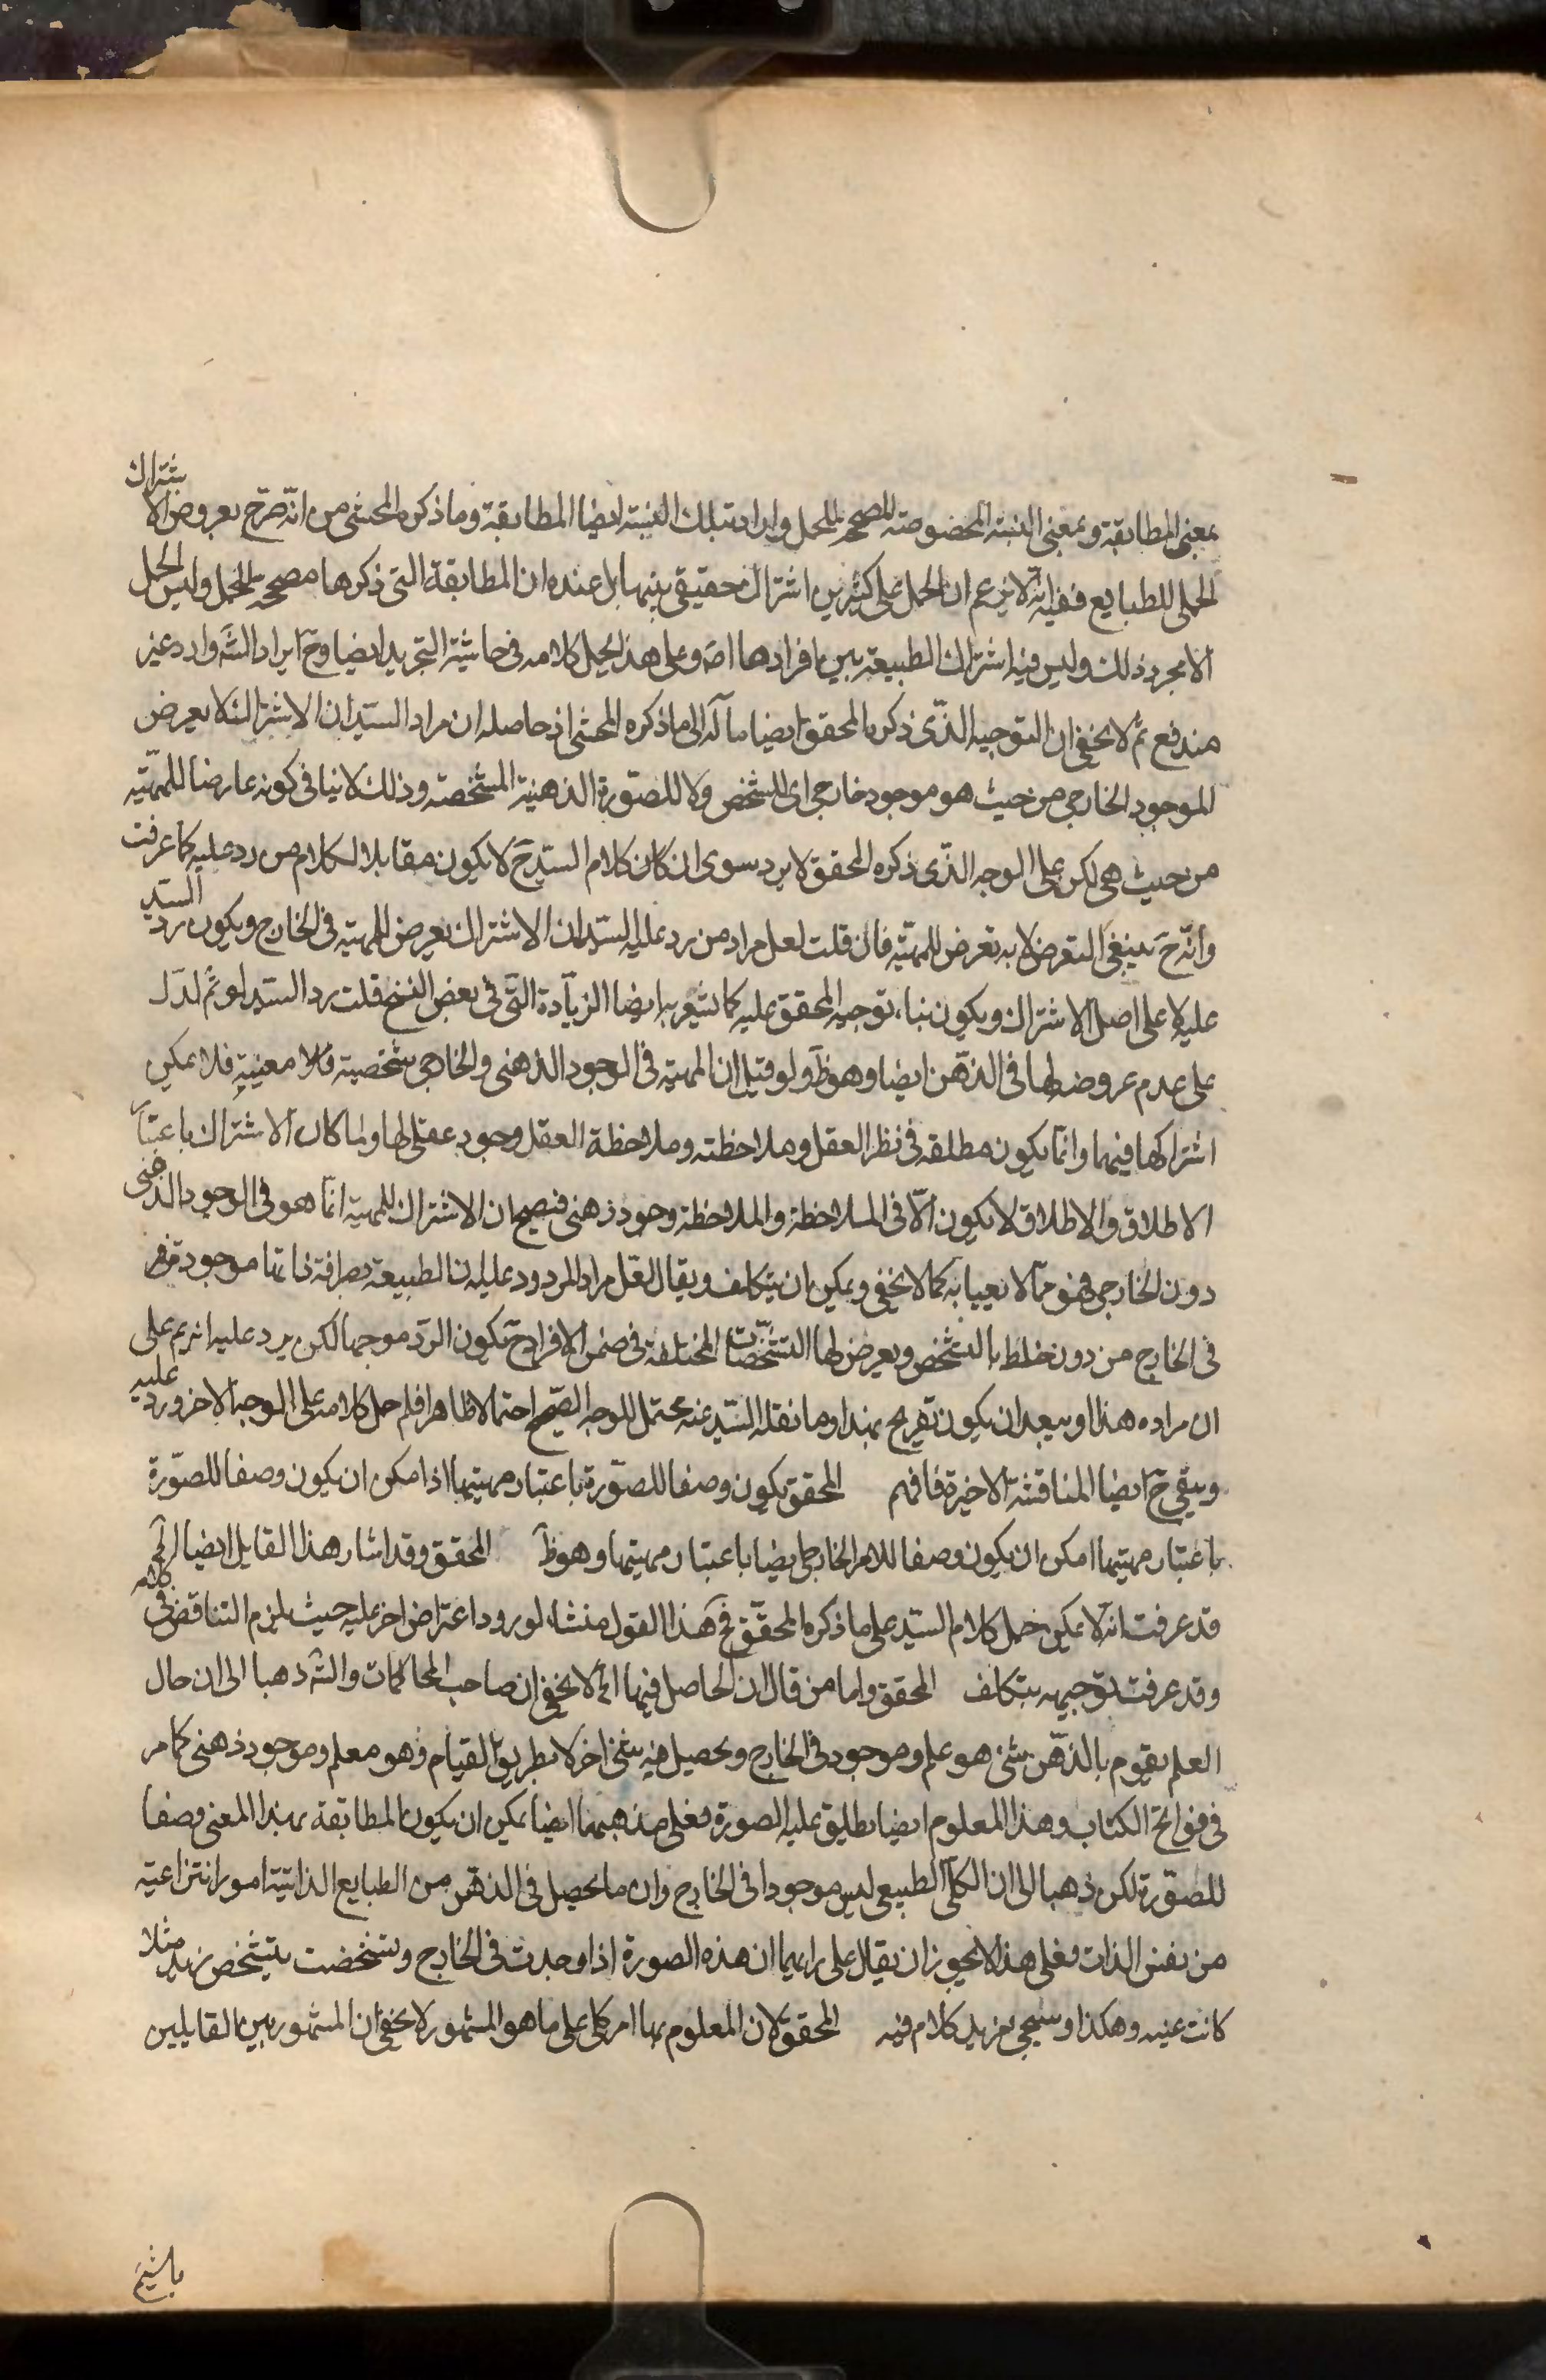 بمعنى المطابقة وبمعنى النسبة المخصوصة المصححة للحمل وايراد تلك النسبة ايضا المطابقة وما ذكره المحشى من انه صرح بعروض الاشتراك
الحملى للطبايع ففيه انه لا يزعم ان الحمل على كثيرين اشتراك حقيقى بينها بل عنده ان المطابقة التى ذكرها مصححة للحمل وليس الحمل
الا مجرد ذلك وليس فيه اشتراك الطبيعة بين افرادها اصَ وعلى هذا يحمل كلامه فى حاشية التجريد ايضا وحَ ايراد الشَ وارد غير
مندفع ثم لا يخفى ان التوجيه الذى ذكره المحقق ايضا مآله الى ما ذكره المحشى اذ حاصله ان مراد السيد ان الاشتراك لا يعرض
الموجود الخارجى من حيث هو موجود خارجى اى الشخص ولا للصورة الذهنية المشخصة وذلك لا ينافى كونه عارضا للمهيّة
من حيث هى لكن على الوجه الذى ذكره المحقق لا يرد سوى ان كان كلام السيد حَ لا يكون مقابلا لكلام من رد عليه كما عرفت
وانه حَ ينبغى التعرض لا به تعرض للمهيّة فان قلت لعل مراد من رد عليه السيد ان الاشتراك يعرض للمهية فى الخارج ويكون رد السيد
عليه لا على اصل الاشتراك ويكون بناء توجيه المحقق عليه كما يشعر به ايضا الزيادة التى فى بعض النسخ قلت رد السيد لو تم لدل
على عدم عروضه لها فى الذهن ايضا وهو ظَ ولو قيل ان المهية فى الوجود الذهنى والخارجى شخصية معينة فلا يمكن
اشتراكها فيهما وانما يكون مطلقه فى نظر العقل وملاحظته وملاحظة العقل وجود عقلى لها ولما كان الاشتراك باعتبار
الاطلاق والاطلاق لا يكون الا فى الملاحظة والملاحظة وجود ذهنى فيصح ان الاشتراك للمهية انما هو فى الوجود الذهنى
دون الخارجى فهو مما لا يعبا به كما لا يخفى ويمكن ان يتكلف ويقال لعل مراد المردود عليه ان الطبيعة بصرافة ذاتها موجودة
فى الخارج من دون خلط بالتشخص ويعرض لها التشخصات المختلفة فى ضمن الافراد حَ يكون الرد موجها لكن يرد عليه انه لم علم
ان مراده هذا او يبعد ان يكون تصريح بهذا وما نقله السيد عنه محتمل للوجه الصحيح احتمالا ظاهرا فلم حمل كلامه على الوجه الاخر ورد عليه
ويبقى حَ ايضا المناقشة الاخيرة فافهم المحقق يكون وصفا للصورة باعتبار مهيتها اذا امكن ان يكون وصفا للصورة
باعتبار مهيتها امكن ان يكون وصفا للامر الخارجى ايضا باعتبار مهيتها وهو ظَ المحقق وقد اشار هذا القايل ايضا الخ
قد عرفت انه لا يمكن حمل كلام السيد على ما ذكره المحقق فحَ هذا القول منشاء لورود اعتراض اخر عليه حيث يلزم التناقض فى كلامه
وقد عرفت توجيهه بتكلف المحقق واما من قال ان الحاصل فيها الخ لا يخفى ان صاحب المحاكمات والشَ ذهبا الى ان حال
العلم يقوم بالذهن شئ هو علم وموجود فى الخارج ويحصل فيه شئ اخر لا بطريق القيام فهو معلم وموجود ذهنى كما مر
فى فواتح الكتاب وهذا المعلوم ايضا يطلق عليه الصورة فعلى مذهبهما ايضا يمكن ان يكون المطابقة بهذا المعنى وصفا
للصورة لكن ذهبا الى ان الكلى الطبيعى ليس موجودا فى الخارج وان ما يحصل فى الذهن من الطبايع الذاتية امور انتزاعية
من نفس الذات فعلى هذا لا يجوز ان يقال على رايهما ان هذه الصورة اذا وجدت فى الخارج وتشخصت بتشخص زيد مثلا
كانت عينه وهكذا وسيجئ مزيد كلام فيه المحقق لان المعلوم بها امر كلى على ما هو المشهور لا يخفى ان المشهور بين القايلين